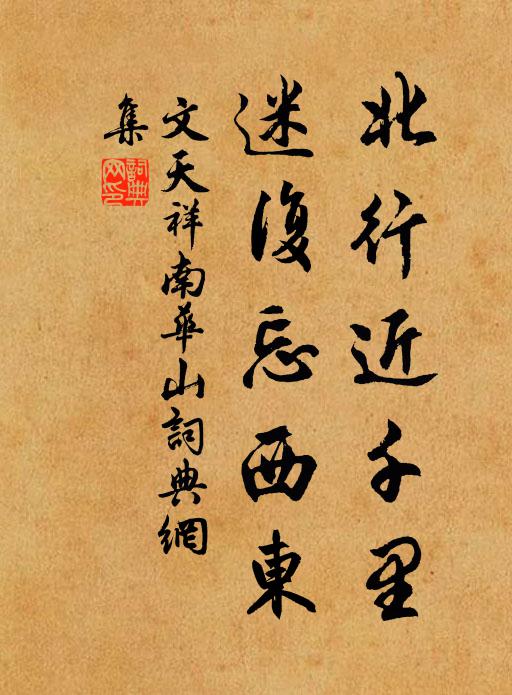 北行近千里
迷復忘西東
文天祥南華山詞典網
集
詞典
网印